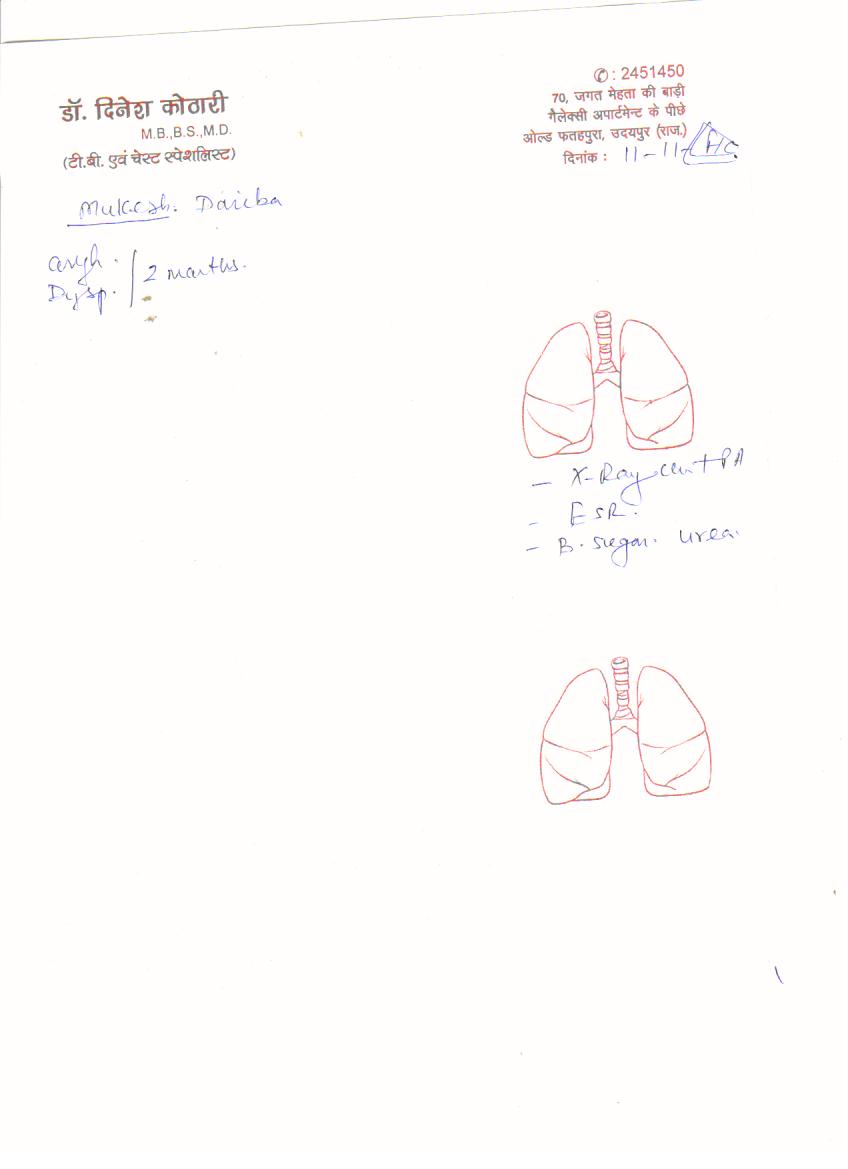 डॉ. दिनेश कोठारी
M.B.,B.S.,M.D.
(टी.बी. एवं चेस्ट स्पेशलिस्ट)
✆: 2451450
70, जगत मेहता की बाड़ी
गैलेक्सी अपार्टमेन्ट के पीछे
ओल्ड फतहपुरा, उदयपुर (राज.)
दिनांक : 11-11-
Mukesh. Dariba
Cough.
Dysp.
2 months.
- X-Ray chest PA
- ESR.
- B. sugar. urea.